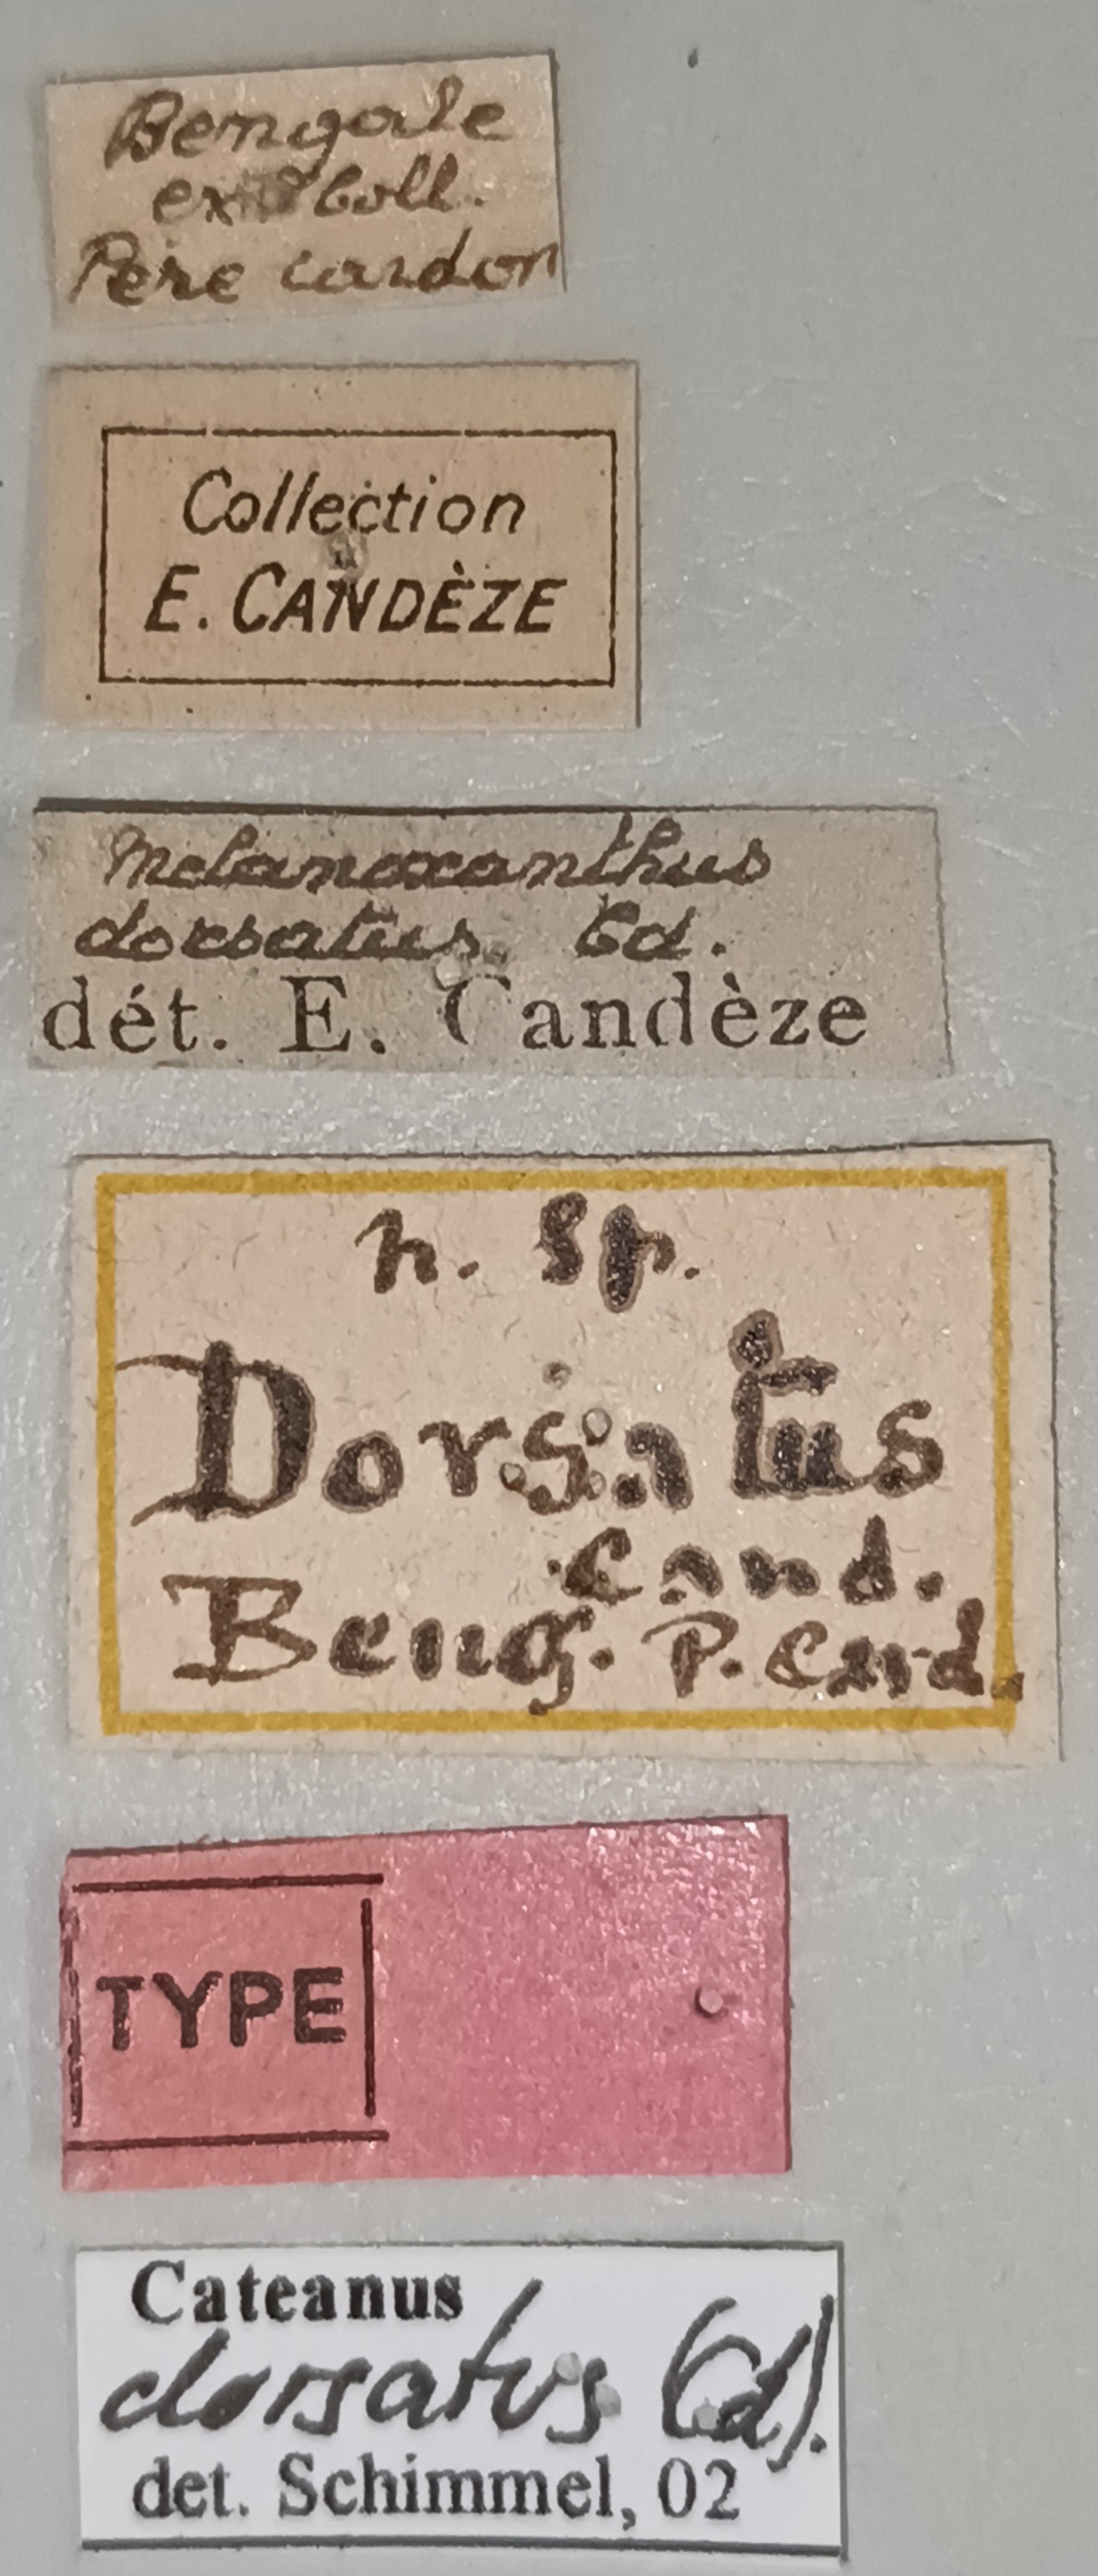 Bengale
ex Coll.
Père cardon
Collection
E. CANDÈZE
Melanoxanthus
dorsatus Cd.
dét. E. Candèze
n. sp.
Dorsatus
Cand.
Beng. P. Card.
TYPE
Cateanus
dorsatus (Cd).
det. Schimmel, 02